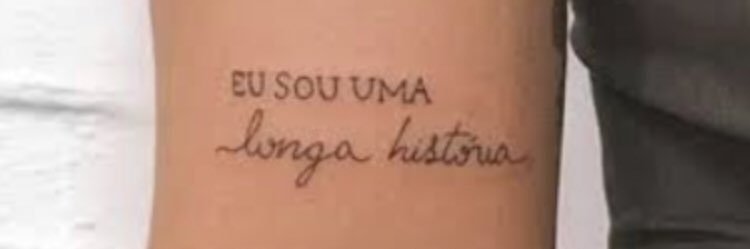 EU SOU UMA
longa história